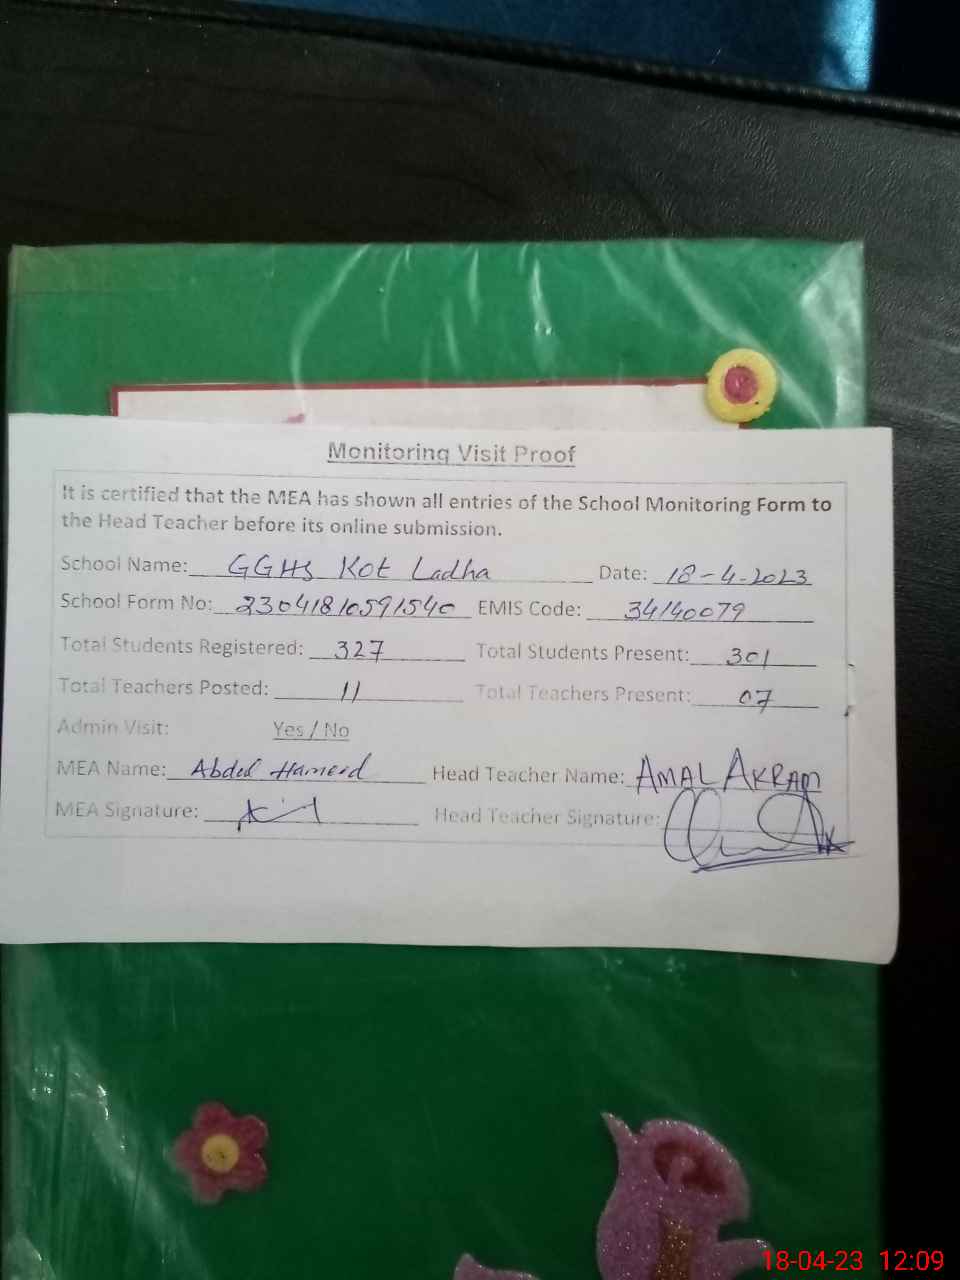 Monitoring Visit Proof
It is certified that the MEA has shown all entries of the School Monitoring Form to
the Head Teacher before its online submission.
School Name: GGHS Kot Ladha Date: 18-4-2023
School Form No: 23041810591540 EMIS Code: 34140079
Total Students Registered: 327 Total Students Present: 301
Total Teachers Posted: 11 Total Teachers Present: 07
Admin Visit: Yes / No
MEA Name: Abdul Hameed Head Teacher Name: AMAL AKRAM
MEA Signature: Head Teacher Signature:
18-04-23 12:09